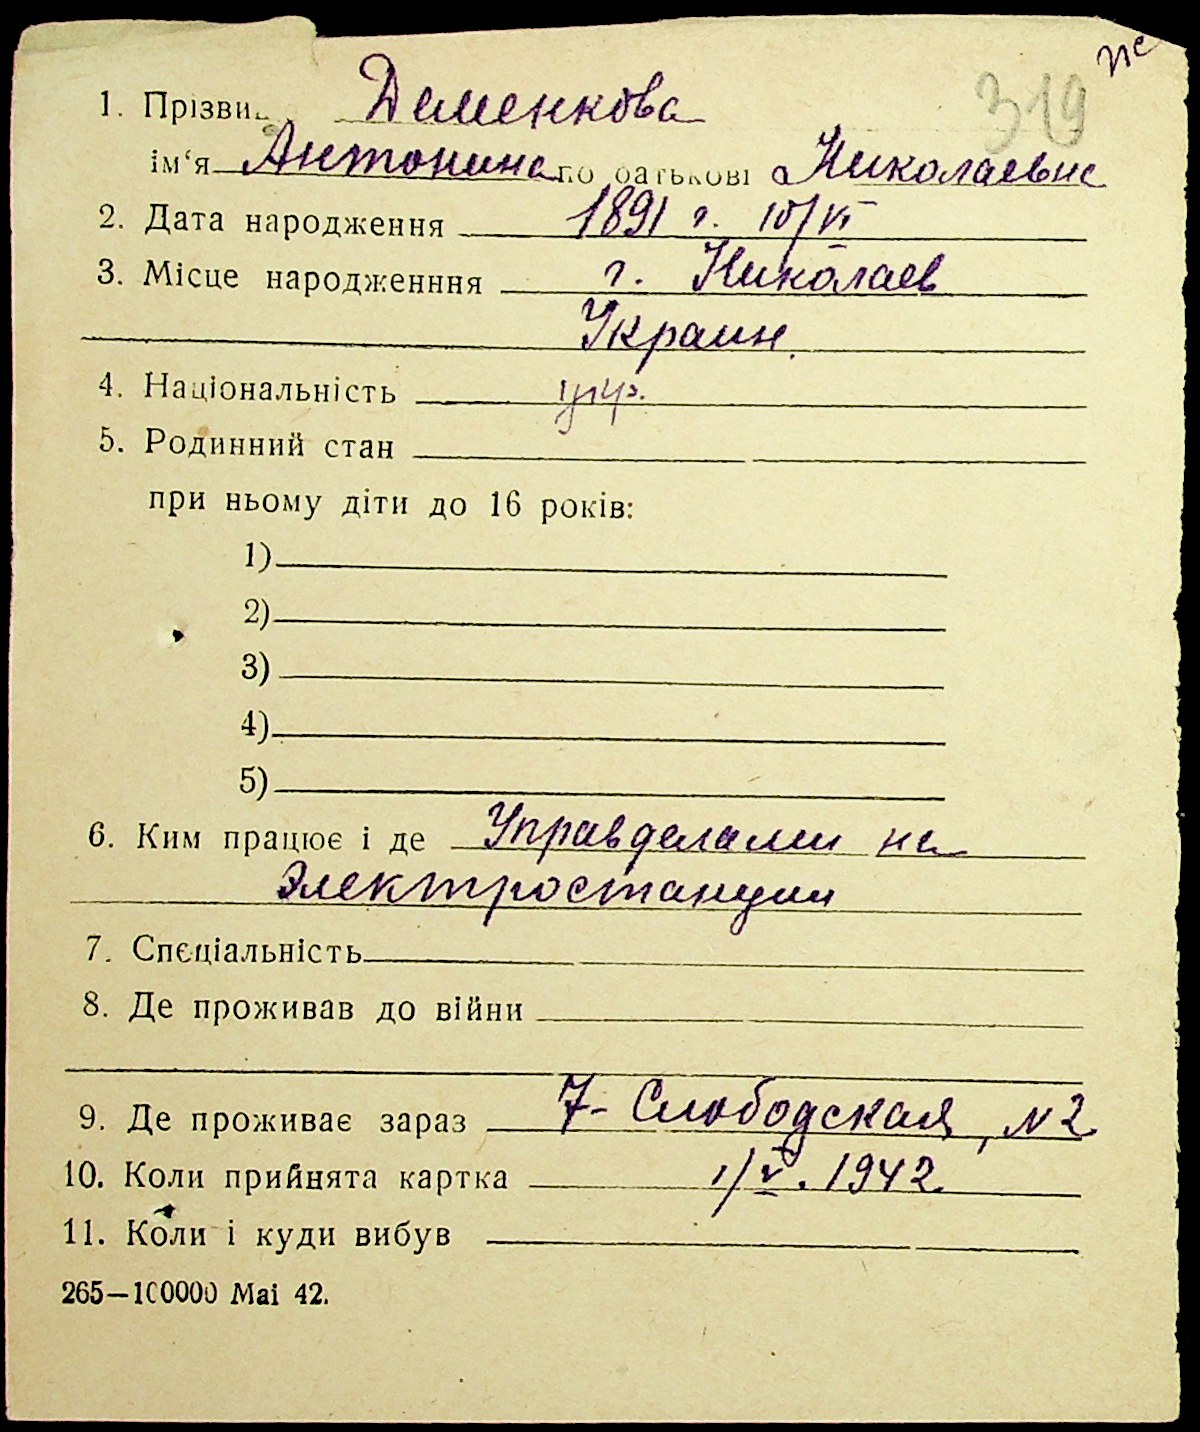 319
1. Прізви Деменкова
ім‘я Антонина по батькові Николаевна
2. Дата народження 1891 г. 10/VI
3. Місце народженння г. Николаев
Украин.
4. Національність укр.
5. Родинний стан
при ньому діти до 16 років:
1)
2)
3)
4)
5)
6. Ким працює і де Управделами на
Электростанции
7. Спєціальність
8. Де проживав до війни
9. Де проживає зараз 7-Слободская, №2
10. Коли прийнята картка 1/V. 1942
11. Коли і куди вибув
265—100000 Mai 42.